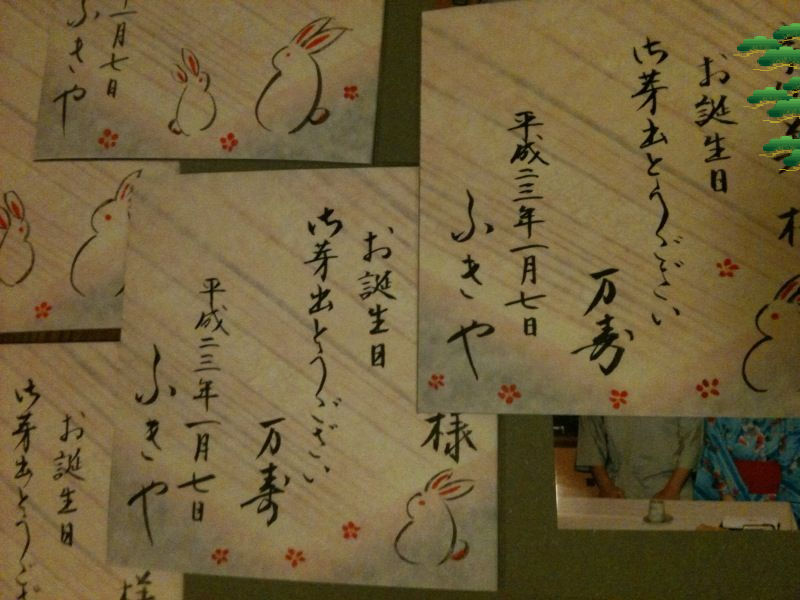 様
お誕生日
御芽出とうございい
万寿
平成二三年一月七日
ふきや
一月七日
ふきや
様
お誕生日
御芽出とうございい
万寿
平成二三年一月七日
ふきや
様
お誕生日
御芽出とうござ